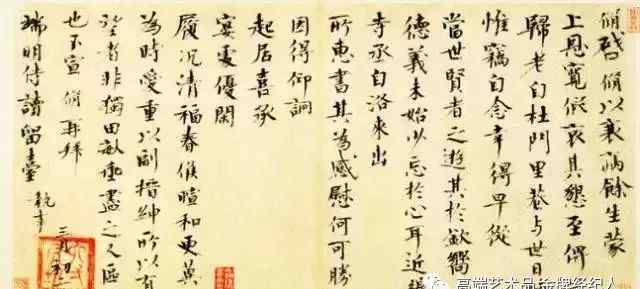 脩啓脩以衰病餘生蒙
上恩寬假哀其懇至俾
歸老自杜門里巷与世日
惟竊自念幸得早從
當世賢者之遊其於欽嚮
德義未始少忘於心耳近
寺丞自洛來出
所惠書其為感慰何可勝
因得仰詢
起居喜承
宴處優閑
履況清福春候暄和更冀
為時愛重以副搢紳所以有
望者非獨田畝垂盡之人區
也不宣 脩再拜
端明侍讀留臺 執事 三月初
高端艺术品金牌经纪人